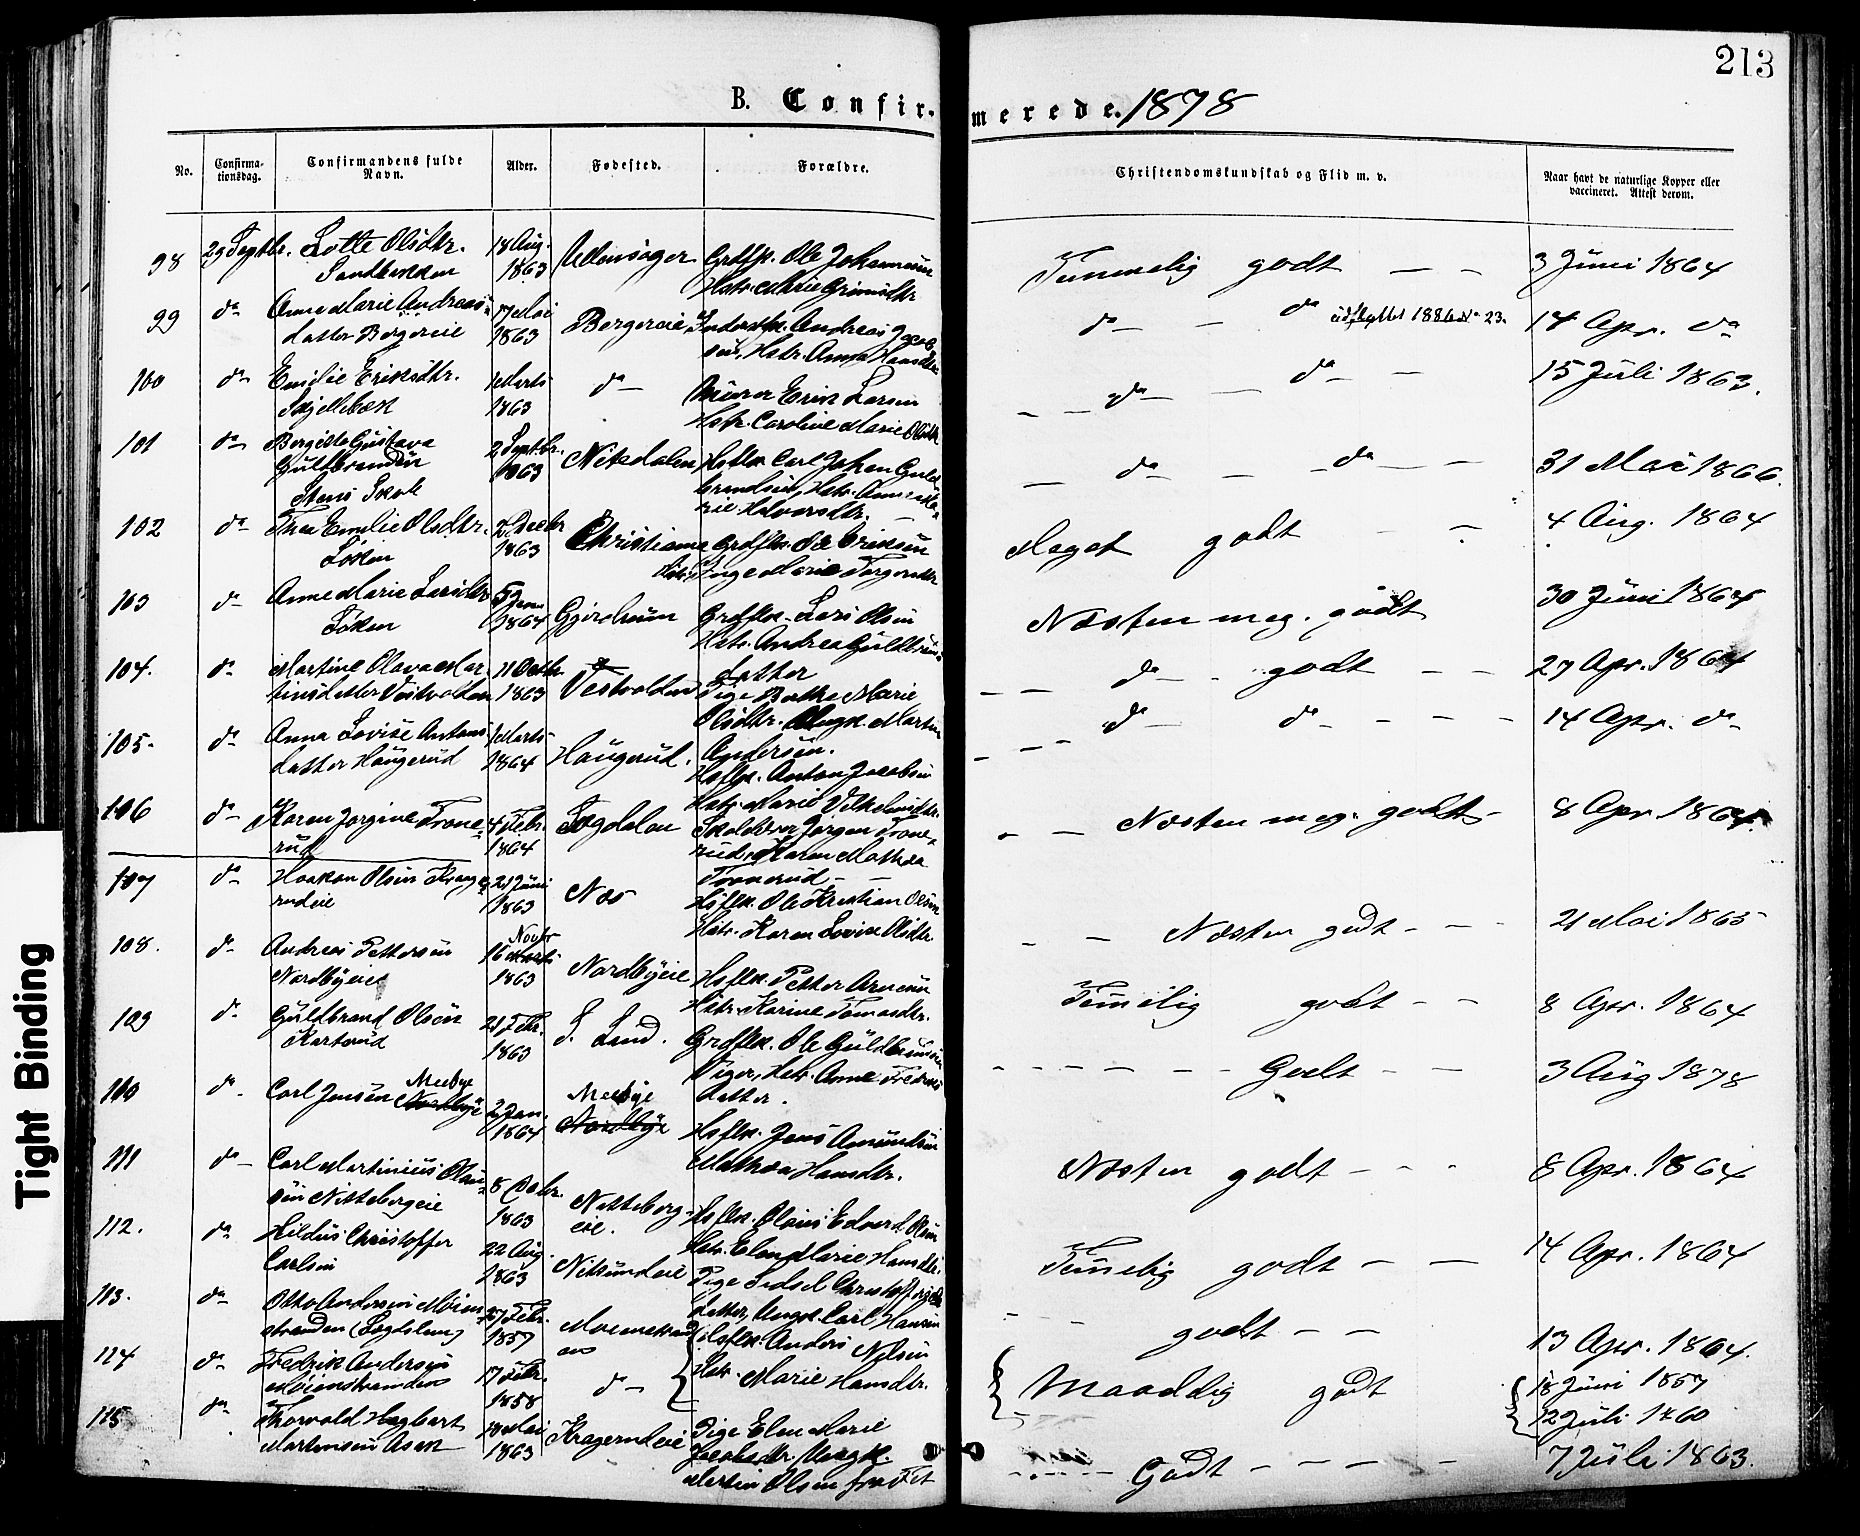 213
B. Confirmerede. 1878
No.
Confirma-
tionsdag.
Confirmandens fulde
Navn.
Alder.
Fødested.
Forældre.
Christendomskundskab og Flid m. v.
Naar havt de naturlige Kopper eller
vaccineret. Attest derom.
98 29 Septbr. Lotte Olsdtr. 18 Aug. Grdflk. Ole Johannesen Temmelig godt — — 3 Juni 1864
1863 Hstr. Marie
99 do Anne Marie Andreas- Mai Bergereie Andreas Jacob- do — do udflyttet 1886 No 23. 14 Apr. do
datter Bergereie 1863 sen, Hstr. Anna Hansdtr.
100 do Emilie Eriksdtr. 1 Marts do — Murer Erik Larsen — — do — do — — 15 Juli 1863.
Skjellebæk 1863 Hstr. Caroline Marie Olsdtr.
101 do Gustava 2 Septbr. Hsflk. Carl Johan Guld- — do — — do — — 31 Mai 1866.
Guldbrandsen 1863 brandsen, Hstr. Anne Ma-
rie Halvorsdtr.
102 do Thea Emilie Olsdtr. Decbr. Christiania Grdflk. Ole Eriksen Meget godt - - 4 Aug. 1864
Løken 1863 Inge Marie
103 do Anne Marie Larsdtr. 5 Janu. Gjerdrum Grdflk. Lars Olsen Næsten meg. godt 30 Juni 1864
Løken 1864 Hstr. Andrea Guldbrands-
datter
104. do Martine Olava Mar- 11 Octbr. Vestvolden Pige Marie — — do — - godt — — 27 Apr. 1864
tinsdatter Vestvolden 1863 Olsdtr. Ungk. Martin
Andersen.
105. do Anna Lovise Antons- 1 Marts Haugerud. Hsflk. Anton Jacobsen — — do — do - - - - 14 Apr. do
datter Haugerud 1864 Hstr. Marie Vilhelmsdtr.
106 do Karen Jørgine Trone- 4 Febr. Skolelærer Jørgen Trone- - — Næsten meg. godt - 8 Apr. 1864.
rud 1864 rud, Karen Mathea
Tronerud
107 do Haakon Olsen Krage- 21 Juni Næs Hsflk. Ole Kristian Olsen - — Næsten godt - - - 21 Mai 1865
rudeie 1863 Hstr. Karen Lovise Olsdtr.
108. do Andreas Pettersen 16 Novbr Nordbyeie Hsflk. Petter Arnesen Temelig godt - - 8 Apr. 1864
Nordbyeie 1863 Hstr. Karine Tomasdtr.
109 do Guldbrand Olsen 21 Febr. S. Land. Grdflk. Ole Guldbrandsen - - - - - Godt - - 3 Aug 1878
1863 Hstr. Anne
datter.
110 do Carl Jensen Meebye 2 Jan. Meebye Hsflk. Jens Amundsen Næsten godt - - - 8 Apr. 1864
Nordbye 1864 Nordbye Mathea Hansdtr.
111 do Carl Martinius Olau- 8 Octbr. Nitteberg- Hsflk. Olaus Edvard Olsen Temelig godt — — 14 Apr. 1864
sen Nittebergeie 1863 eie. Hstr. Elen Marie Hansdtr.
112. do Hildus Christoffer 22 Aug. Nitsundeie Pige Sidsel Christoffers- - - godt — — 13 Apr. 1864.
Carlsen 1863 datter, Ungk. Carl Hansen
113. do Otto Andersen Moen- Febr. Moenstrand- Hsflk. Anders Nilsen Maadelig godt 18 Juni 1857
stranden 1857 en Hstr. Marie Hansdtr. 12 Juli 1860
114 do Fredrik Andersen 17 Febr. do —
Moenstranden 1858
115 do Thorvald Hagbart 18 Mai Kragerudeie Pige Elen Marie - - - - - Godt - - - - - 7 Juli 1863.
Martinsen Asak 1863 Jacobsdtr. Ungk.
Martin Olsen fra Fet
Tight Binding